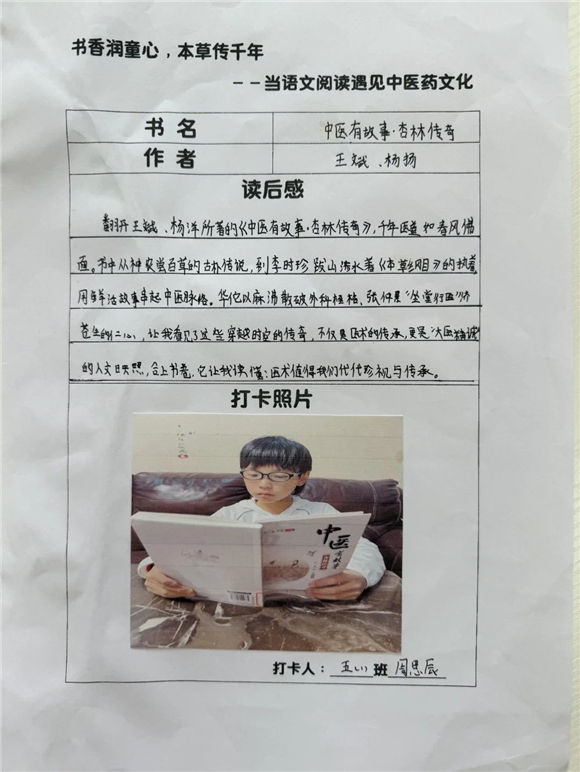 书香润童心，本草传千年
－－当语文阅读遇见中医药文化
书 名 中医有故事·杏林传奇
作 者 王斌、杨扬
读后感
翻开王斌、杨洋所著的《中医有故事·杏林传奇》，千年医道如春风拂
面。书中从神农尝百草的古朴传说，到李时珍跋山涉水著《本草纲目》的执着
用鲜活故事串起中医脉络。华佗以麻沸散破外科桎梏、张仲景"坐堂行医"济
苍生的仁心，让我看见了这些穿越时空的传奇，不仅是医术的传承，更是"大医精诚"
的人文映照，合上书卷，它让我读懂：医术值得我们代代珍视与传承。
打卡照片
中医
有故事
打卡人：五（1）班 周思辰